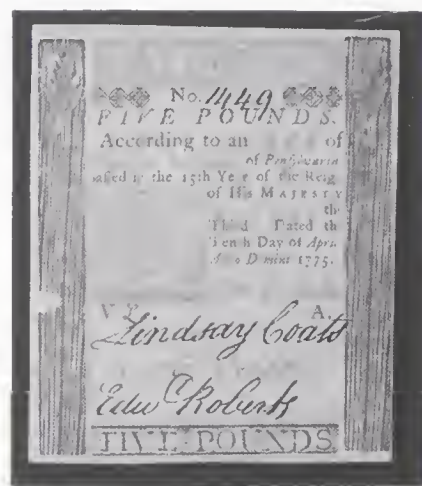 No. 1449
FIVE POUNDS.
According to an of
of Pensylvania
the 15th Year of the Reig
of His MAJESTY
th
Third Dated th
Tenth Day of Apri
Domini 1775.
V. P. A.
Lindsay Coats
Edw Roberts
FIVE POUNDS